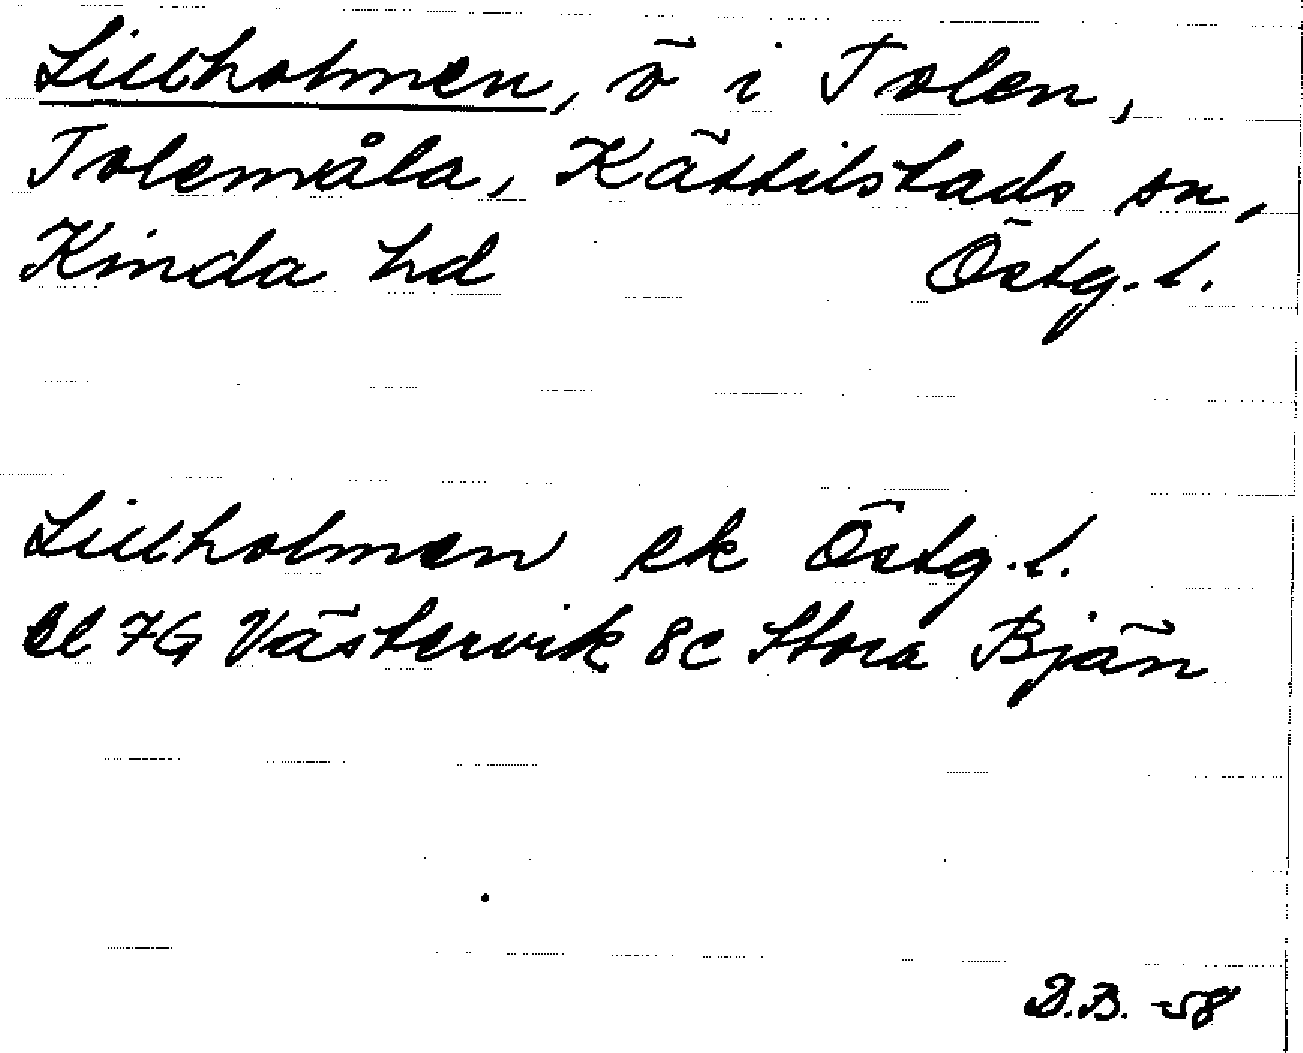 Lillholmen, ö i Tolen,
Tolemåla, Kättilstads sn,
Kinda hd Östg. l.
Lillholmen ek Östg. l.
bl 7G Västervik 8c Stora Bjän
D.B. -58